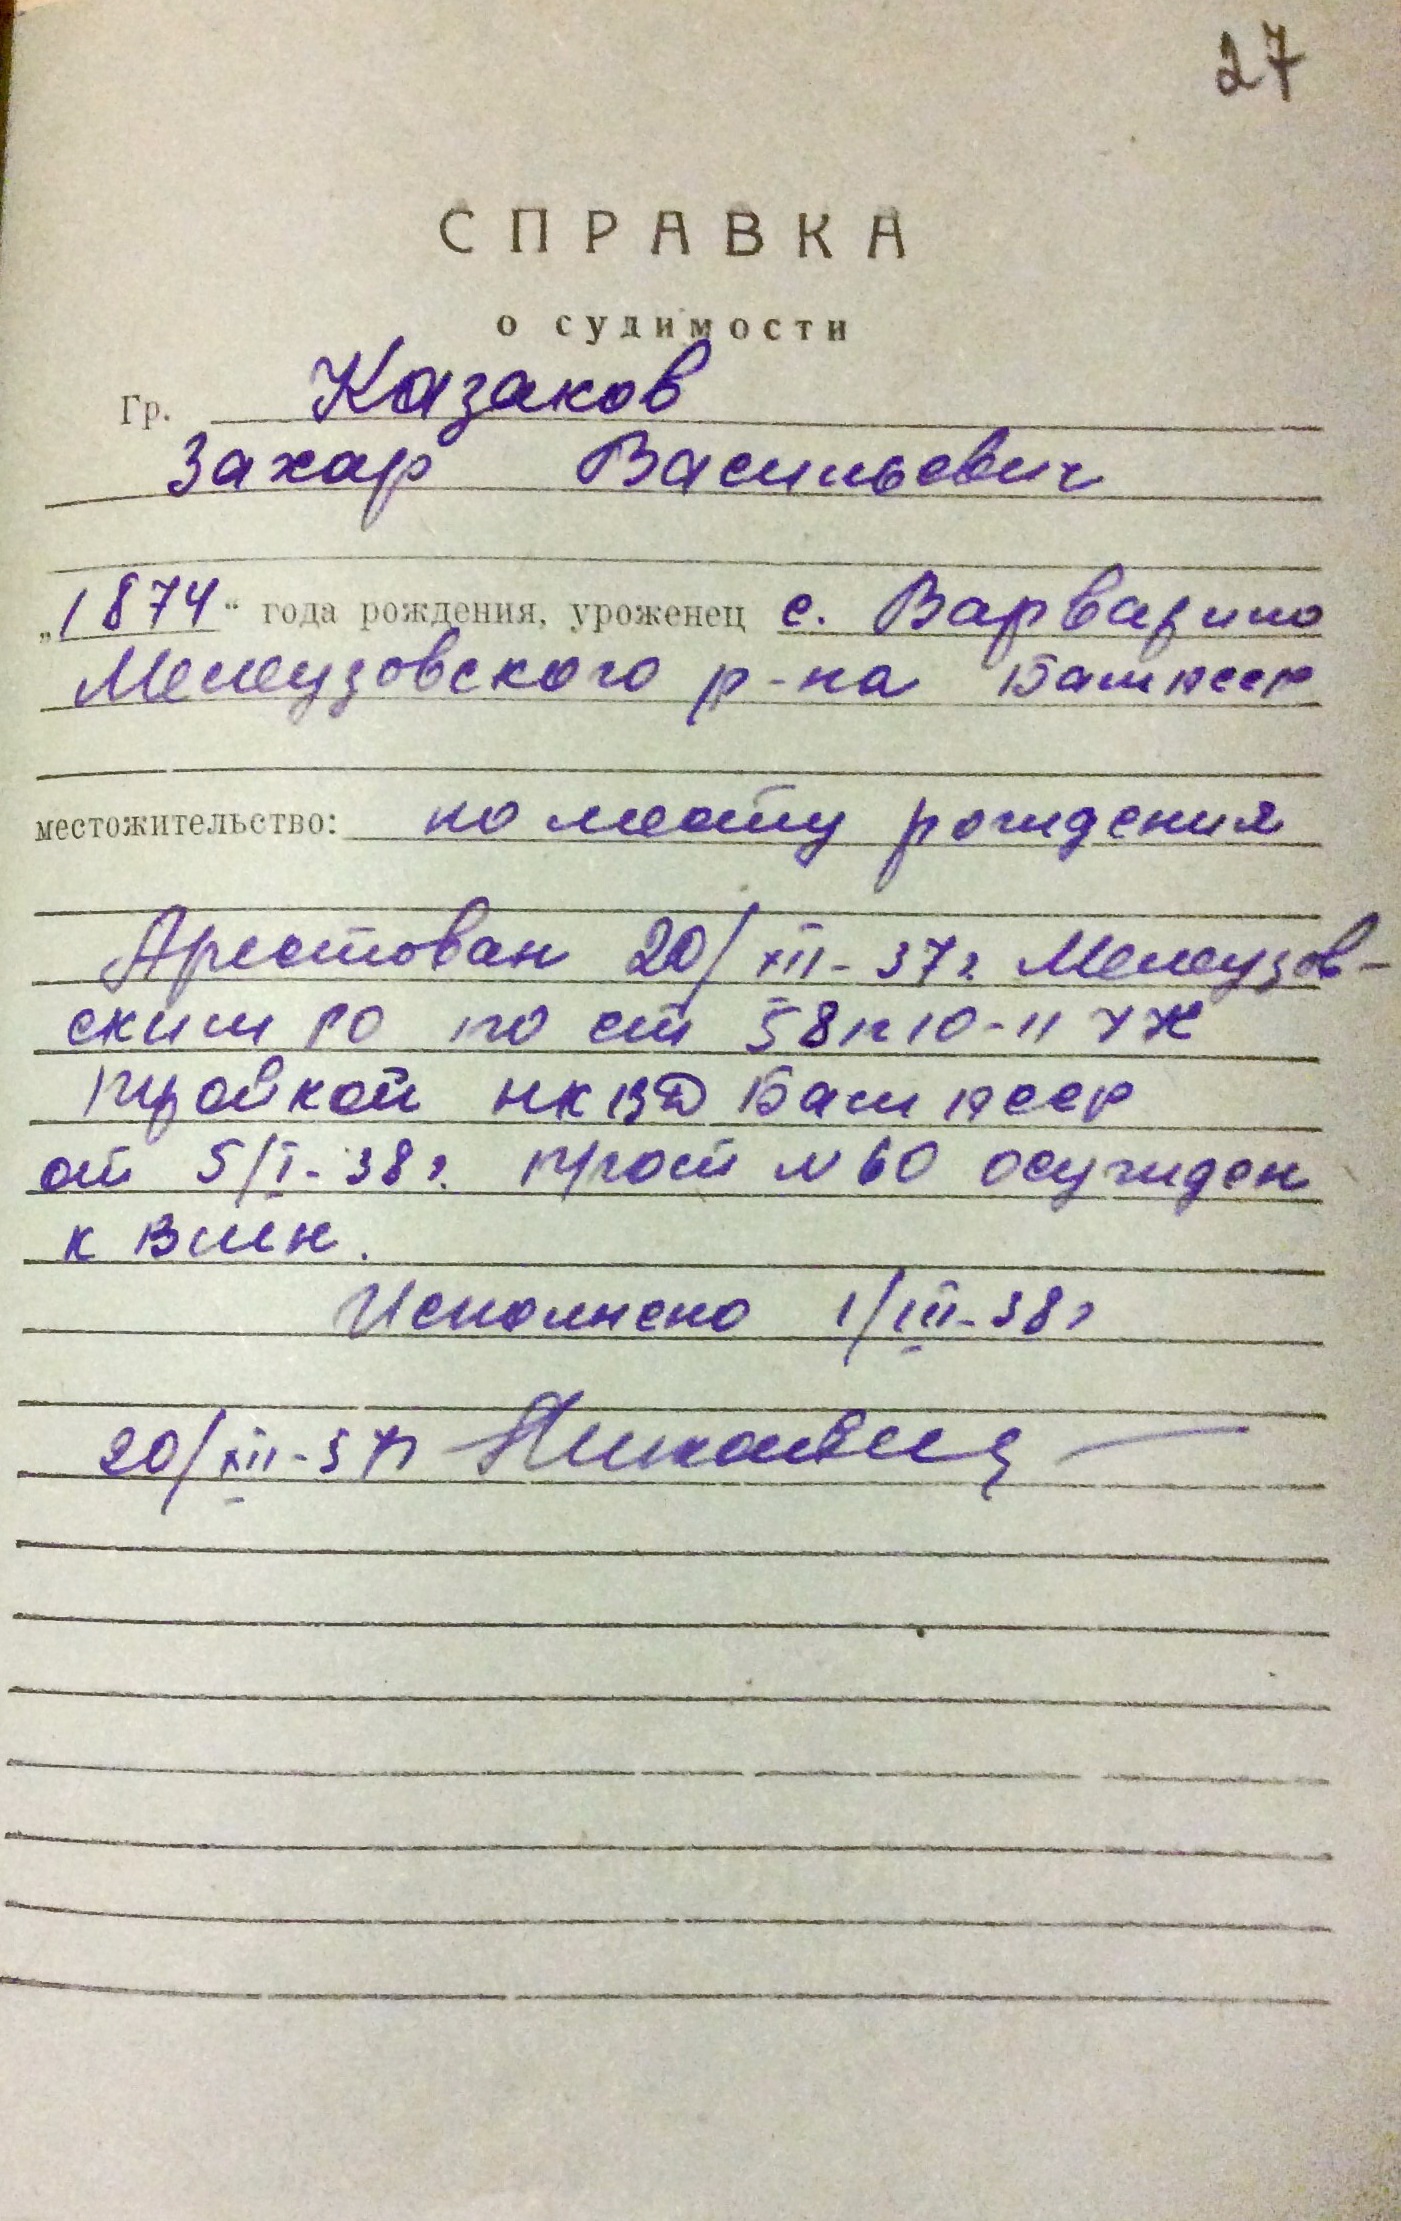 27
СПРАВКА
о судимости
Гр. Казаков
Захар Васильевич
„1874“ года рождения, уроженец с. Варварино
Мелеузовского р-на Баш АССР
местожительство: по месту рождения
Арестован 20/XII-37г. Мелеузов-
ским РО по ст 58 п 10-11 УК
Тройкой НКВД Баш АССР
от 5/I-38г. прот №60 осужден
к ВМН.
Исполнено 1/III-38г
20/XII-57г